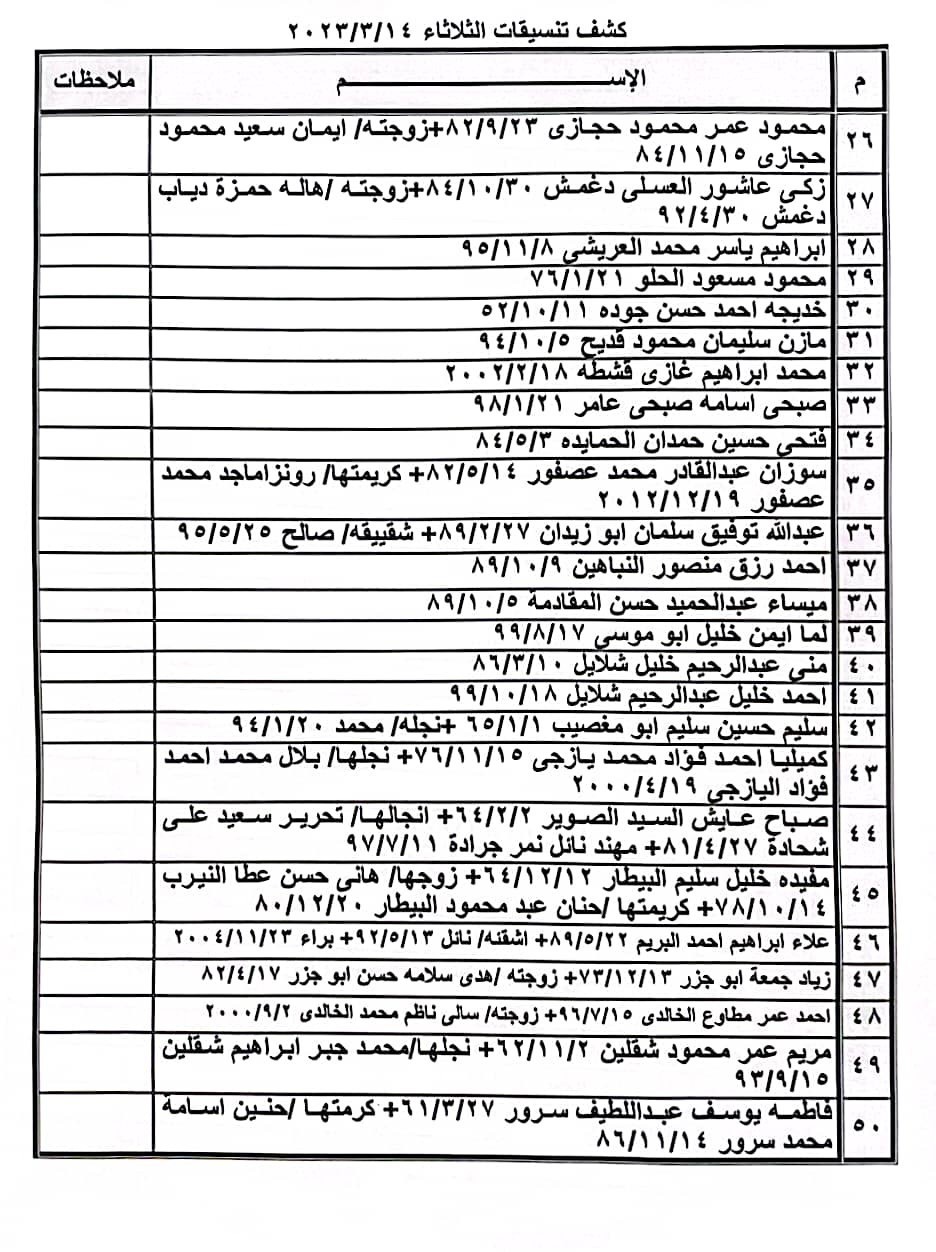 كشف تنسيقات الثلاثاء ٢٠٢٣/٣/١٤
م الإســــــــــــــم ملاحظات
٢٦ محمود عمر محمود حجازى ٨٢/٩/٢٣+زوجته/ ايمان سعيد محمود
حجازى ٨٤/١١/١٥
٢٧ زكى عاشور العسلى دغمش ٨٤/١٠/٣٠+زوجته /هاله حمزة دياب
دغمش ٩٢/٤/٣٠
٢٨ ابراهيم ياسر محمد العريشي ٩٥/١١/٨
٢٩ محمود مسعود الحلو ٧٦/١/٢١
٣٠ خديجه احمد حسن جوده ٥٢/١٠/١١
٣١ مازن سليمان محمود قديح ٩٤/١٠/٥
٣٢ محمد ابراهيم غازى قشطه ٢٠٠٢/٢/١٨
٣٣ صبحى اسامه صبحى عامر ٩٨/١/٢١
٣٤ فتحي حسين حمدان الحمايده ٨٤/٥/٣
٣٥ سوزان عبدالقادر محمد عصفور ٨٢/٥/١٤+ كريمتها/ رونزاماجد محمد
عصفور ٢٠١٢/١٢/١٩
٣٦ عبدالله توفيق سلمان ابو زيدان ٨٩/٢/٢٧+ شقييقه/ صالح ٩٥/٥/٢٥
٣٧ احمد رزق منصور النباهين ٨٩/١٠/٩
٣٨ ميساء عبدالحميد حسن المقادمة ٨٩/١٠/٥
٣٩ لما ايمن خليل ابو موسي ٩٩/٨/١٧
٤٠ مني عبدالرحيم خليل شلايل ٨٦/٣/١٠
٤١ احمد خليل عبدالرحيم شلايل ٩٩/١٠/١٨
٤٢ سليم حسين سليم ابو مغصيب ٦٥/١/١ +نجله/ محمد ٩٤/١/٢٠
٤٣ كميليا احمد فؤاد محمد يازجى ٧٦/١١/١٥+ نجلها/ بلال محمد احمد
فؤاد اليازجي ٢٠٠٠/٤/١٩
٤٤ صباح عايش السيد الصوير ٦٤/٢/٢+ انجالها/ تحرير سعيد على
شحادة ٨١/٤/٢٧+ مهند نائل نمر جرادة ٩٧/٧/١١
٤٥ مفيده خليل سليم البيطار ٦٤/١٢/١٢+ زوجها/ هانى حسن عطا النيرب
٧٨/١٠/١٤+ كريمتها /حنان عبد محمود البيطار ٨٠/١٢/٢٠
٤٦ علاء ابراهيم احمد البريم ٨٩/٥/٢٢+ اشقنه/ نائل ٩٢/٥/١٣+ براء ٢٠٠٤/١١/٢٣
٤٧ زياد جمعة ابو جزر ٧٣/١٢/١٣+ زوجته /هدى سلامه حسن ابو جزر ٨٢/٤/١٧
٤٨ احمد عمر مطاوع الخالدى ٩٦/٧/١٥+ زوجته/ سالى ناظم محمد الخالدى ٢٠٠٠/٩/٢
٤٩ مريم عمر محمود شقلين ٦٢/١١/٢+ نجلها/محمد جبر ابراهيم شقلين
٩٣/٩/١٥
٥٠ فاطمه يوسف عبداللطيف سرور ٦١/٣/٢٧+ كرمتها /حنين اسامة
محمد سرور ٨٦/١١/١٤